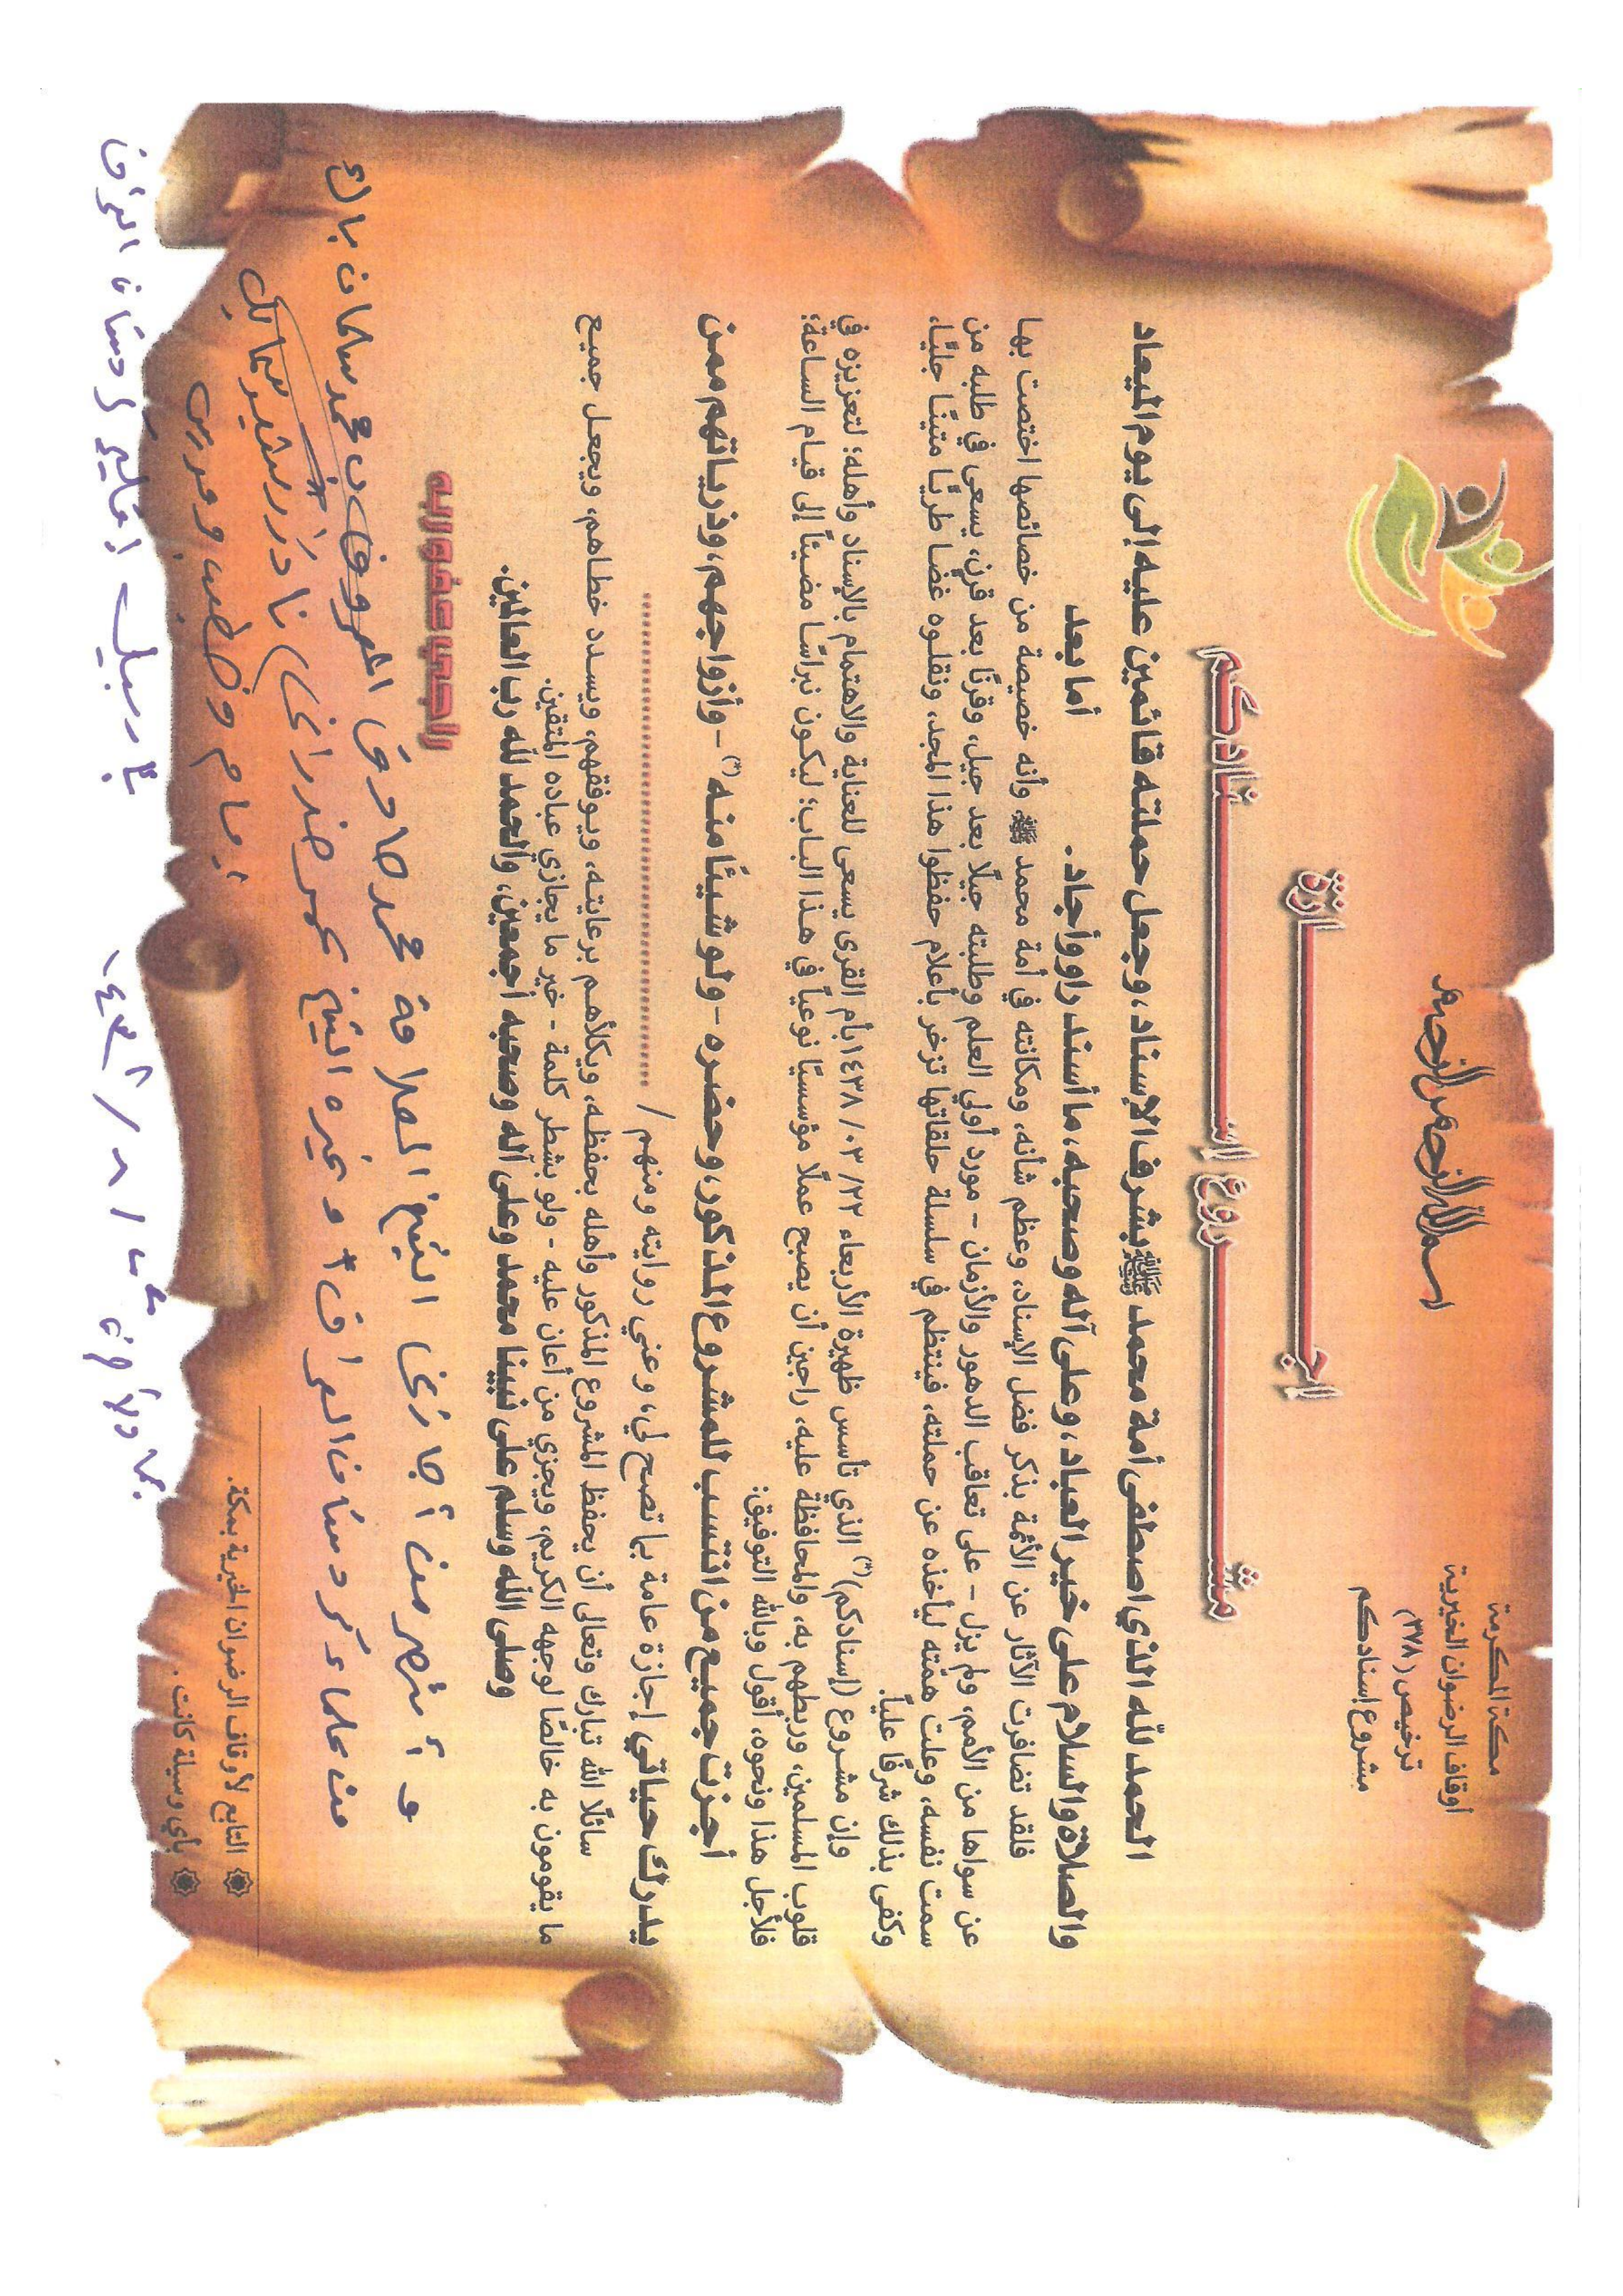 بسم الله الرحمن الرحيم
مكة المكرمة
أوقاف الرضوان الخيرية
ترخيص (٣٧٨)
مشروع إسنادكم
إجازة
مشروع إسنادكم
الحمد لله الذي اصطفى أمة محمد ﷺ بشرف الإسناد، وجعل حملته قائمين عليه إلى يوم الميعاد
والصلاة والسلام على خير العباد، وعلى آله وصحبه، ما أسند راو وأجاد.
أما بعد
فلقد تضافرت الآثار عن الأئمة بذكر فضل الإسناد، وعظم شأنه، ومكانته في أمة محمد ﷺ، وأنه خصيصة من خصائصها اختصت بها
عن سواها من الأمم، ولم يزل - على تعاقب الدهور والأزمان - مورد أولي العلم وطلبته جيلًا بعد جيل، وقرنًا بعد قرن، يسعى في طلبه من
سمت نفسه، وعلت همته ليأخذه عن حملته، فينتظم في سلسلة حلقاتها تزخر بأعلام حفظوا هذا المجد، ونقلوه غضا طريًا متينًا جليًا،
وكفى بذلك شرفًا عليًا.
وإن مشروع (إسنادكم)(*) الذي تأسس ظهيرة الأربعاء ٢٣/ ٠٣/ ١٤٣٨ بأم القرى يسعى للعناية والاهتمام بالإسناد وأهله؛ لتعزيزه في
قلوب المسلمين، وربطهم به، والمحافظة عليه، راجين أن يصبح عملًا مؤسسيًا نوعياً في هذا الباب؛ ليكون نبراسًا مضيئاً إلى قيام الساعة؛
فلأجل هذا ونحوه، أقول وبالله التوفيق:
أجزت جميع من انتسب للمشروع المذكور، وحضره - ولو شيئا منه (*) - وأزواجهم، وذرياتهم ممن
يدرك حياتي إجازة عامة بما تصح لي، وعني روايته ومنهم / ....................
سائلًا الله تبارك وتعالى أن يحفظ المشروع المذكور وأهله بحفظه، ويكلأهم برعايته، ويوفقهم، ويسدد خطاهم، ويجعل جميع
ما يقومون به خالصًا لوجهه الكريم، ويجزي من أعان عليه - ولو بشطر كلمة - خير ما يجازي عباده المتقين.
وصلى الله وسلم على نبينا محمد وعلى آله وصحبه أجمعين، والحمد لله رب العالمين.
راجي عفو ربه
و أشهر من أجازني الشيخ العلامة محمد صادق المعروف بـ محمد سلمان باك
من علماء كردستان العراق و غيره الشيخ عمر
نادر
إمام وخطيب ومدرس
التابع لأوقاف الرضوان الخيرية بمكة.
بأي وسيلة كانت.
أربيل إقليم كردستان العراق